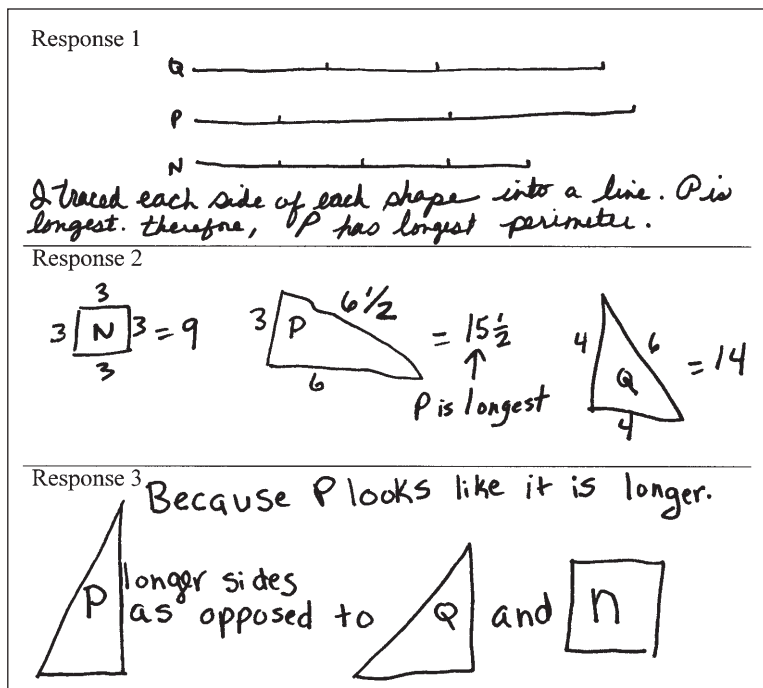 Response 1
Q
P
N
I traced each side of each shape into a line. P is
longest. therefore, P has longest perimeter.
Response 2
3
3 N 3 = 9
3
3 P 6 1/2 = 15 1/2
6
P is longest
4 Q 6 = 14
4
Response 3
Because P looks like it is longer.
P longer sides
as opposed to Q and n